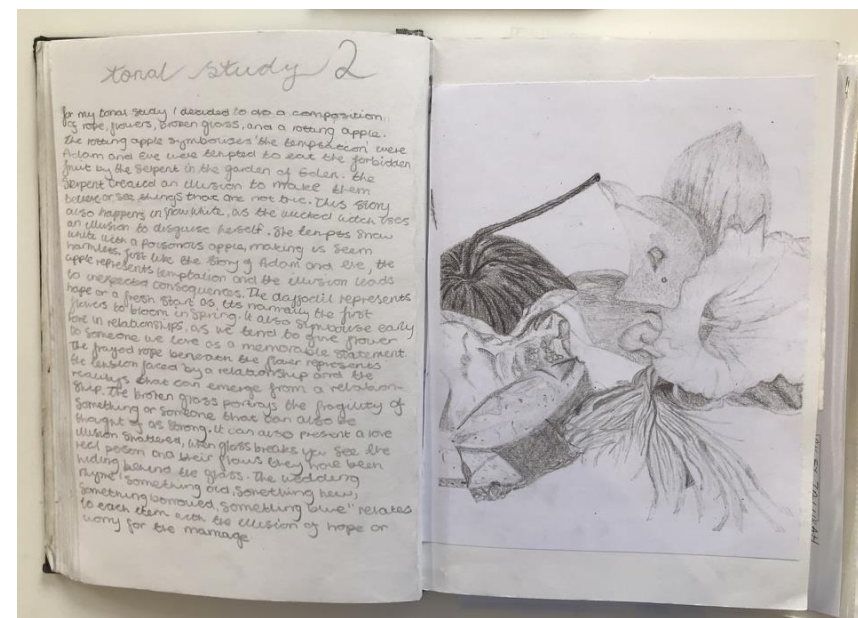 tonal study 2
for my tonal study I decided to do a composition
of rope, flowers, broken glass, and a rotting apple.
the rotting apple symbolises 'the temptation' were
Adam and Eve were tempted to eat the forbidden
fruit by the serpent in the garden of Eden. the
serpent created an illusion to make them
believe or see things that are not true. This story
also happens in snow white, as the wicked witch uses
an illusion to disguise herself. She tempts snow
white with a poisonous apple, making is seem
harmless. Just like the story of Adam and eve, the
apple represents temptation and the illusion leads
to unexpected consequences. The daffodil represents
hope or a fresh start as its normally the first
flowers to bloom in spring. it also symbolise early
love in relationships, as we tend to give flower
to someone we love as a memorable statement
the frayed rope beneath the flower represents
the tension faced by a relationship and the
realitys that can emerge from a relation-
ship. The broken glass portrays the fragility of
something or someone that can also be
thought of as strong. it can also present a love
illusion shattered, when glass breaks you see the
reel person and their flaws they have been
hiding behind the glass. The wedding
rhyme "something old, something new,
something borrowed, something blue" relates
to each item with the illusion of hope or
worry for the marriage